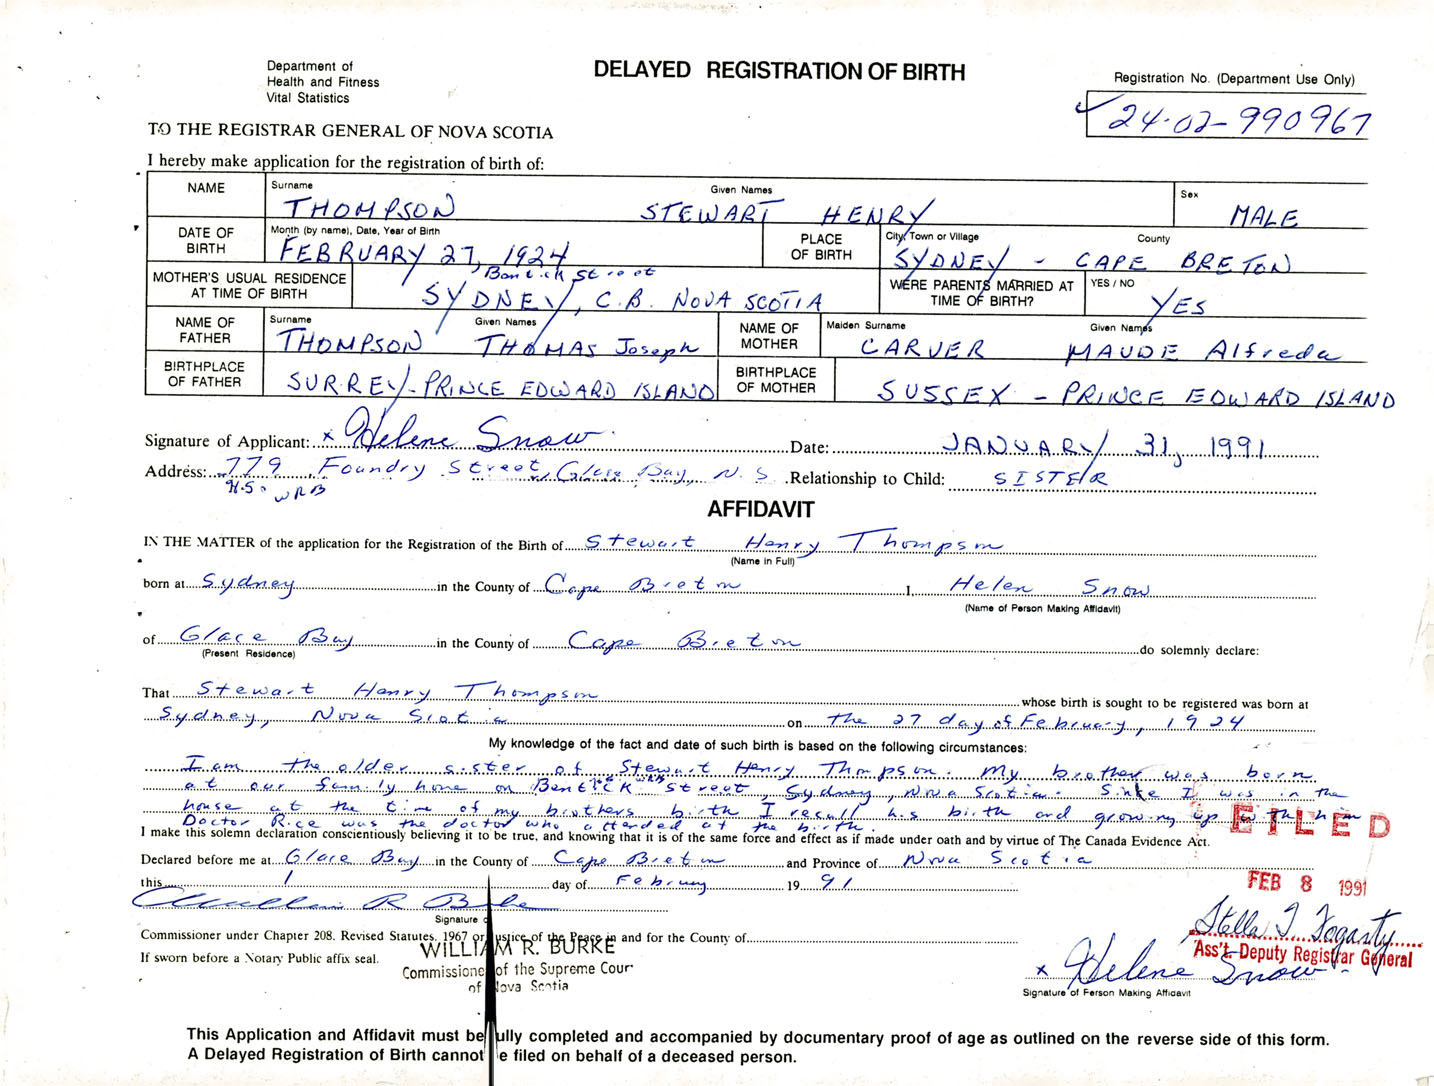 Department of
Health and Fitness
Vital Statistics
DELAYED REGISTRATION OF BIRTH
Registration No. (Department Use Only)
24-02-990967
TO THE REGISTRAR GENERAL OF NOVA SCOTIA
I hereby make application for the registration of birth of:
NAME Surname Given Names Sex
THOMPSON STEWART HENRY MALE
DATE OF BIRTH Month (by name), Date, Year of Birth PLACE OF BIRTH City, Town or Village County
FEBRUARY 27, 1924 SYDNEY - CAPE BRETON
MOTHER'S USUAL RESIDENCE AT TIME OF BIRTH Bentick Street WERE PARENTS MARRIED AT TIME OF BIRTH? YES / NO
SYDNEY, C.B. NOVA SCOTIA YES
NAME OF FATHER Surname Given Names NAME OF MOTHER Maiden Surname Given Names
THOMPSON THOMAS Joseph CARVER MAUDE Alfreda
BIRTHPLACE OF FATHER SURREY - PRINCE EDWARD ISLAND BIRTHPLACE OF MOTHER SUSSEX - PRINCE EDWARD ISLAND
Signature of Applicant: x Helene Snow Date: JANUARY 31, 1991
Address: 779 Foundry Street, Glace Bay, N.S. Relationship to Child: SISTER
H.S. WRB
AFFIDAVIT
IN THE MATTER of the application for the Registration of the Birth of Stewart Henry Thompson
(Name in Full)
born at Sydney in the County of Cape Breton I, Helen Snow
(Name of Person Making Affidavit)
of Glace Bay in the County of Cape Breton do solemnly declare:
(Present Residence)
That Stewart Henry Thompson whose birth is sought to be registered was born at
Sydney, Nova Scotia on the 27 day of February, 1924
My knowledge of the fact and date of such birth is based on the following circumstances:
I am the older sister of Stewart Henry Thompson. My brother was born
at our family home on Bentick WRB Street, Sydney, Nova Scotia. Since I was in the
house at the time of my brothers birth I recall his birth and growing up with him
Doctor Rice was the doctor who attended at the birth.
FILED
I make this solemn declaration conscientiously believing it to be true, and knowing that it is of the same force and effect as if made under oath and by virtue of The Canada Evidence Act.
Declared before me at Glace Bay in the County of Cape Breton and Province of Nova Scotia
this 1 day of February 19 91
FEB 8 1991
William R Burke
Signature
Stella T Fogarty
Ass't. Deputy Registrar General
Commissioner under Chapter 208. Revised Statutes, 1967 or Justice of the Peace in and for the County of
WILLIAM R. BURKE
If sworn before a Notary Public affix seal.
Commissioner of the Supreme Court
of Nova Scotia
x Helene Snow
Signature of Person Making Affidavit
This Application and Affidavit must be fully completed and accompanied by documentary proof of age as outlined on the reverse side of this form.
A Delayed Registration of Birth cannot be filed on behalf of a deceased person.